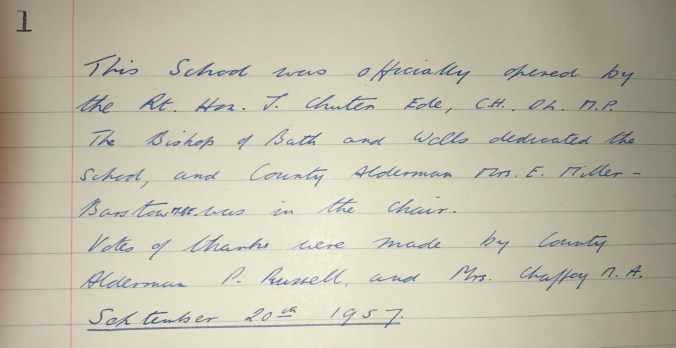 1
This School was officially opened by
the Rt. Hon. J. Chuter Ede, C.H. D.L. M.P.
The Bishop of Bath and Wells dedicated the
School, and County Alderman Mrs. E. Miller-
Barstow MBE. was in the chair.
Votes of thanks were made by County
Alderman P. Russell, and Mrs. Chaffey M.A.
September 20th 1957.